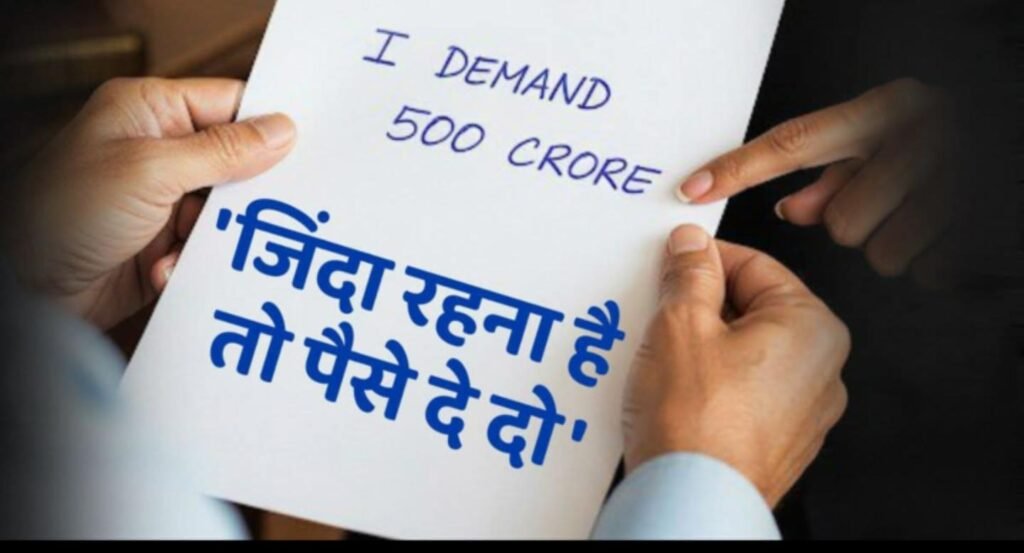 I DEMAND
500 CRORE
'जिंदा रहना है
तो पैसे दे दो'